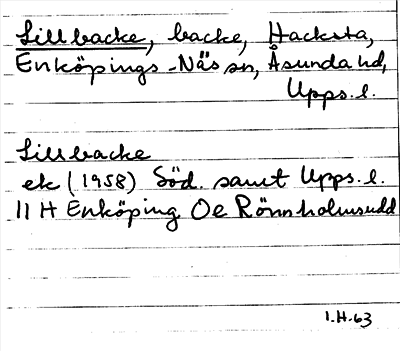 Lillbacke, backe, Hacksta,
Enköpings-Näs sn, Åsunda hd,
Upps. l.
Lillbacke
ek (1958) Söd. samt Upps. l.
11 H Enköping Oe Rönnholmsudd
I.H.63